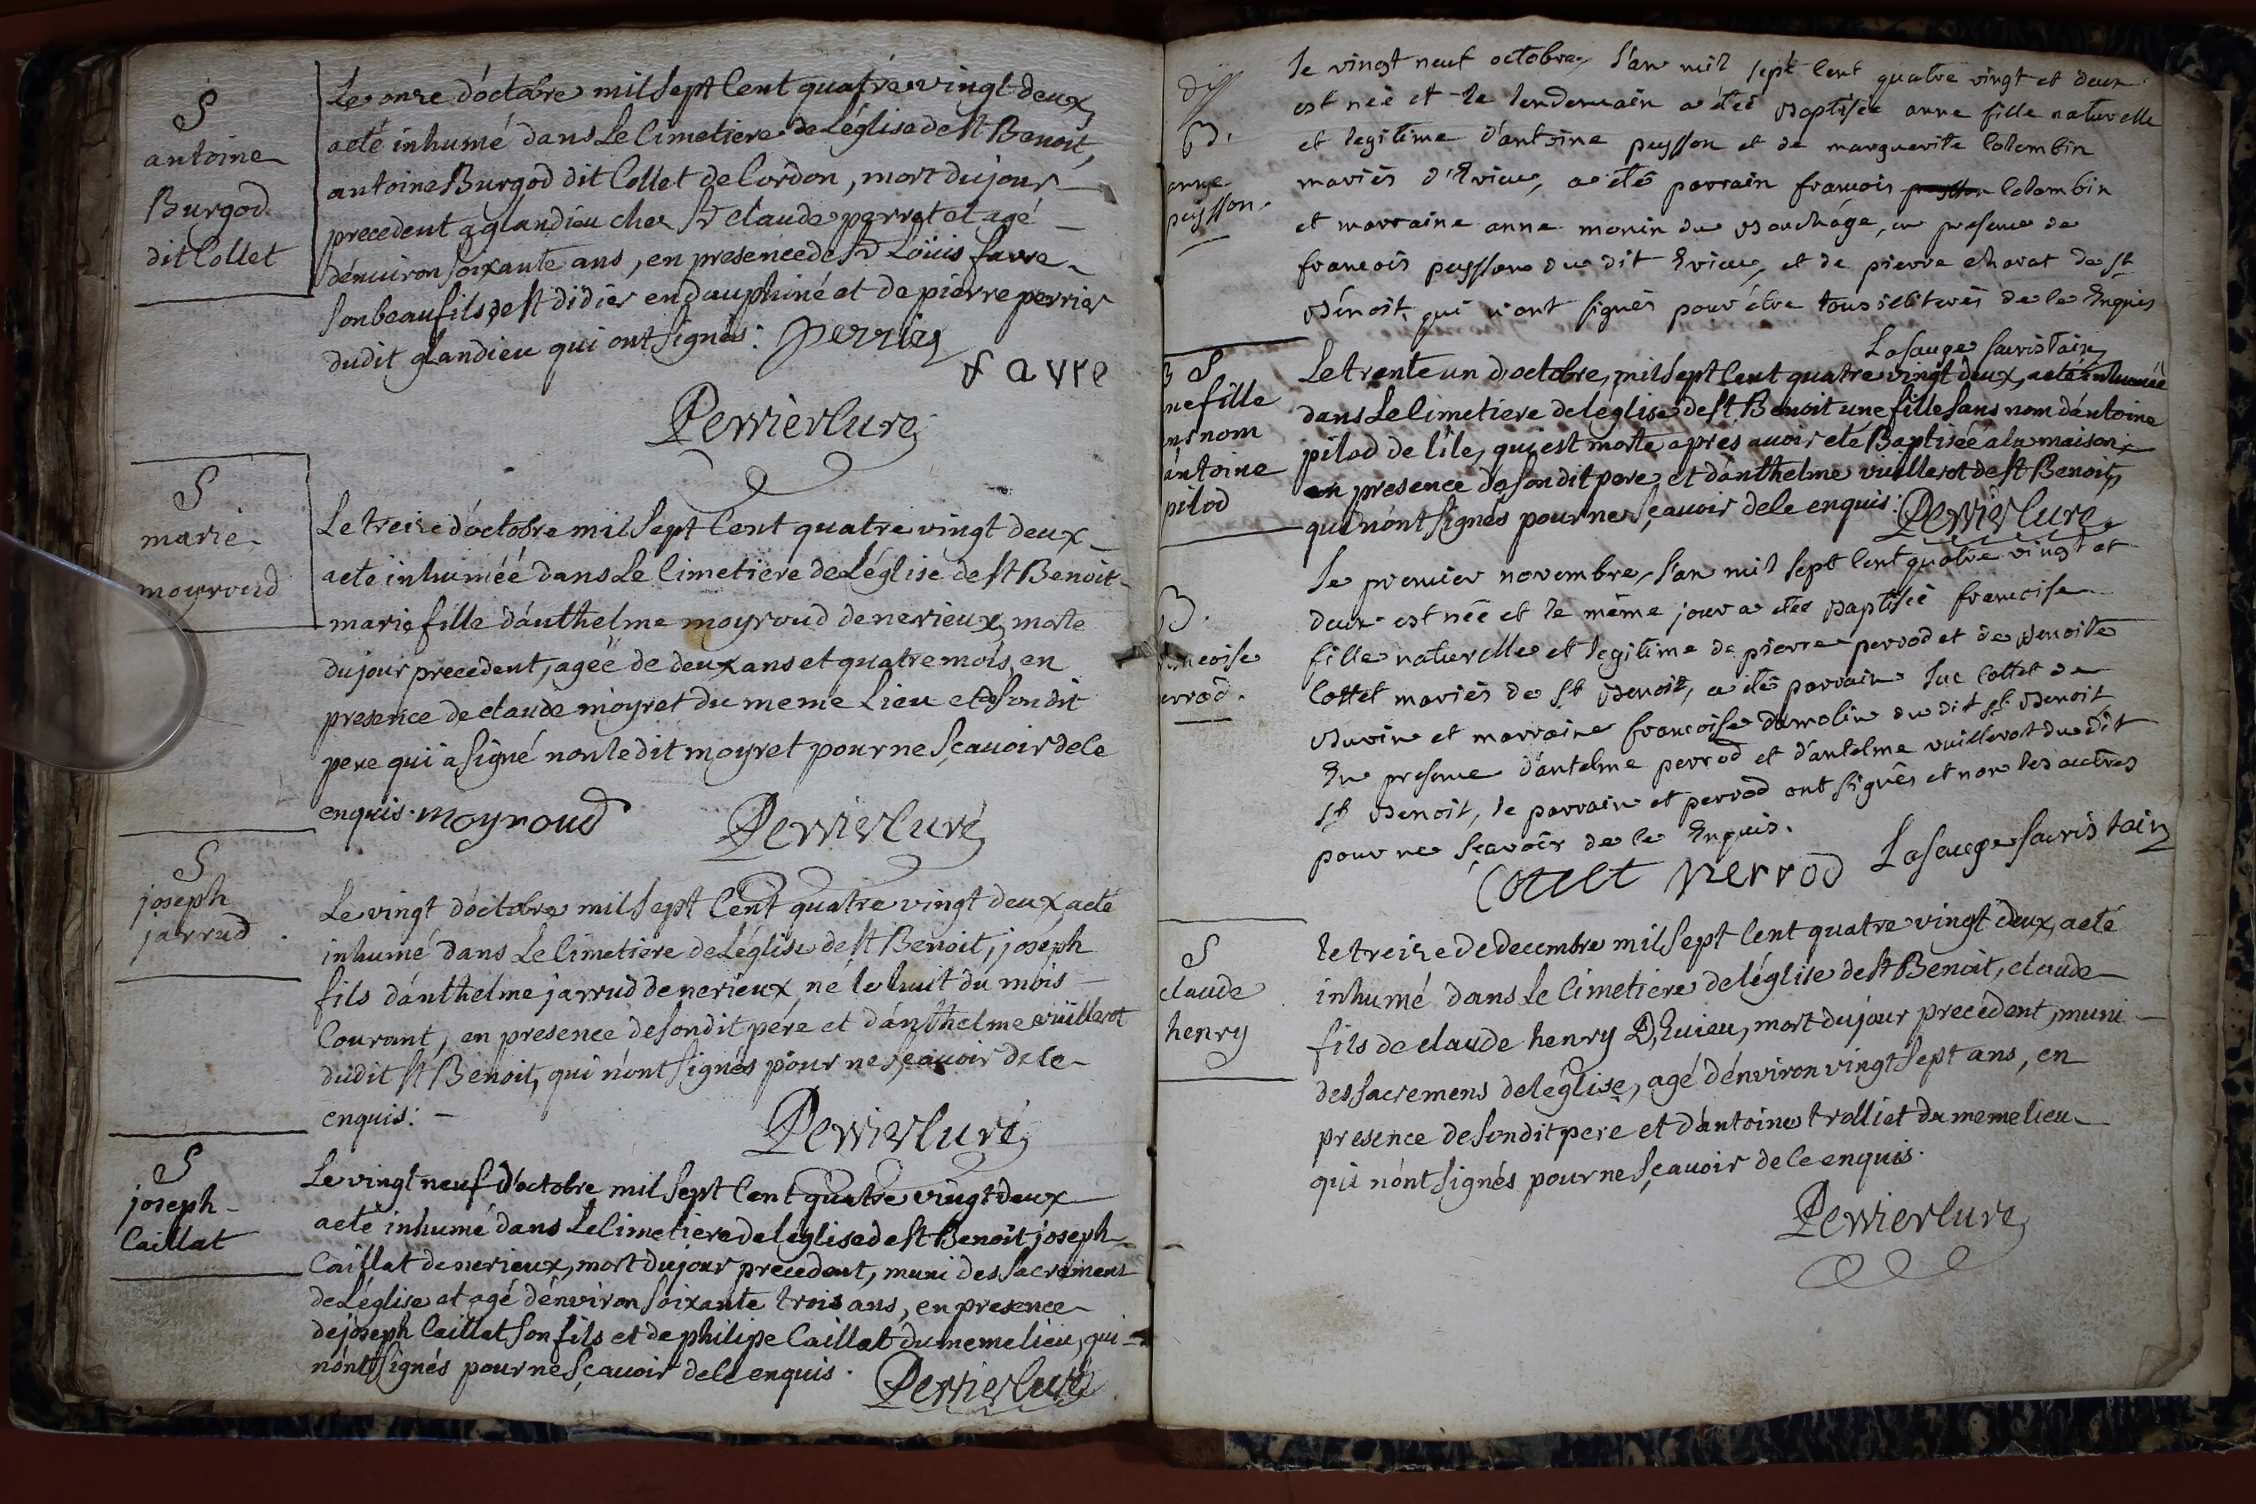 S
antoine
Burgod
dit Collet
Le onze d'octobre mil sept Cent quatre vingt deux
a eté inhumé dans Le Cimetiere de L'église de st Benoit,
antoine Burgod dit Collet de Cordon, mort du jour
precedent a glandieu chez Sr claude perret et agé
d'enuiron soixante ans, en presence de Sr Loüis favre
son beau fils de st didier en dauphiné et de pierre perrier
dudit glandieu qui ont signés: perrier
favre
Perrier Curé
S
marie
moyroud
Le treize d'octobre mil sept Cent quatre vingt deux
a eté inhumée dans Le Cimetiere de L'église de st Benoit
marie fille d'anthelme moyroud de nerieux, morte
du jour precedent, agée de deux ans et quatre mois, en
presence de claude moyret du meme Lieu et de son dit
pere qui a signé non le dit moyret pour ne sçauoir de ce
enquis. moyroud
Perrier Curé
S
joseph
jarrud
Le vingt d'octobre mil sept Cent quatre vingt deux, a eté
inhumé dans Le Cimetiere de L'église de st Benoit, joseph
fils d'anthelme jarrud de nerieux, né le huit du mois
Courant, en presence de son dit pére et d'anthelme vüillerot
dudit st Benoit, qui n'ont signés pour ne sçauoir de ce
enquis:
Perrier Curé
S
joseph
Caillat
Le vingt neuf d'octobre mil sept Cent quatre vingt deux
a eté inhumé dans Le Cimetiere de l'église de st Benoit joseph
Caillat de nerieux, mort du jour precedent, muni des sacremens
de L'église et agé d'environ soixante trois ans, en presence
de joseph Caillat son fils et de philipe Caillat du meme lieu, qui
n'ont signés pour ne sçauoir de ce enquis.
Perrier Curé
B.
anne
peysson.
le vingt neuf octobre, l'an mil sept cent quatre vingt et deux
est née et le lendemain a été Baptisée anne fille naturelle
et legitime d'antoine peysson et de marguerite Colombin
mariés d'Evieu, a été parrain francois Colombin
et marraine anne monin du Bouchage, en presence de
francois peysson du dit Evieu, et de pierre charat de st
Bénoit, qui n'ont signés pour étre tous illiterés de ce Enquis
Lasauge Sacristain
S
ne fille
ns nom
antoine
pilod
Le trente un d'octobre, mil sept Cent quatre vingt deux, a eté inhumée
dans Le Cimetiere de l'église de st Benoit une fille sans nom d'antoine
pilod de l'île, qui est morte aprés auoir eté Baptisée a la maison
en presence de son dit pere et d'anthelme vuillerot de st Benoit,
qui n'ont signés pour ne sçauoir de ce enquis: Perrier Curé
B.
ncoise
errod.
Le premier novembre, l'an mil sept Cent quatre vingt et
deux est née et le méme jour a été Baptisée francoise
fille naturelle et legitime de pierre perrod et de Benoite
Cottet mariés de st Benoit, a été parrain Luc Cottet de
Buvin et marraine francoise Dumolin du dit st Benoit
En presence d'antelme perrod et d'antelme vuillerot du dit
st Benoit, le parrain et perrod ont signés et non les autres
pour ne sçavoir de ce Enquis.
Cottet perrod Lasauge Sacristain
S
claude
henry
le treize de decembre mil sept Cent quatre vingt deux, a eté
inhumé dans Le Cimetiere de l'église de st Benoit, claude
fils de claude henry D'Euieu, mort du jour precédent, muni
des sacremens de l'église, agé d'environ vingt sept ans, en
presence de son dit pere et d'antoine trolliet du meme lieu
qui n'ont signés pour ne sçauoir de ce enquis.
Perrier Curé